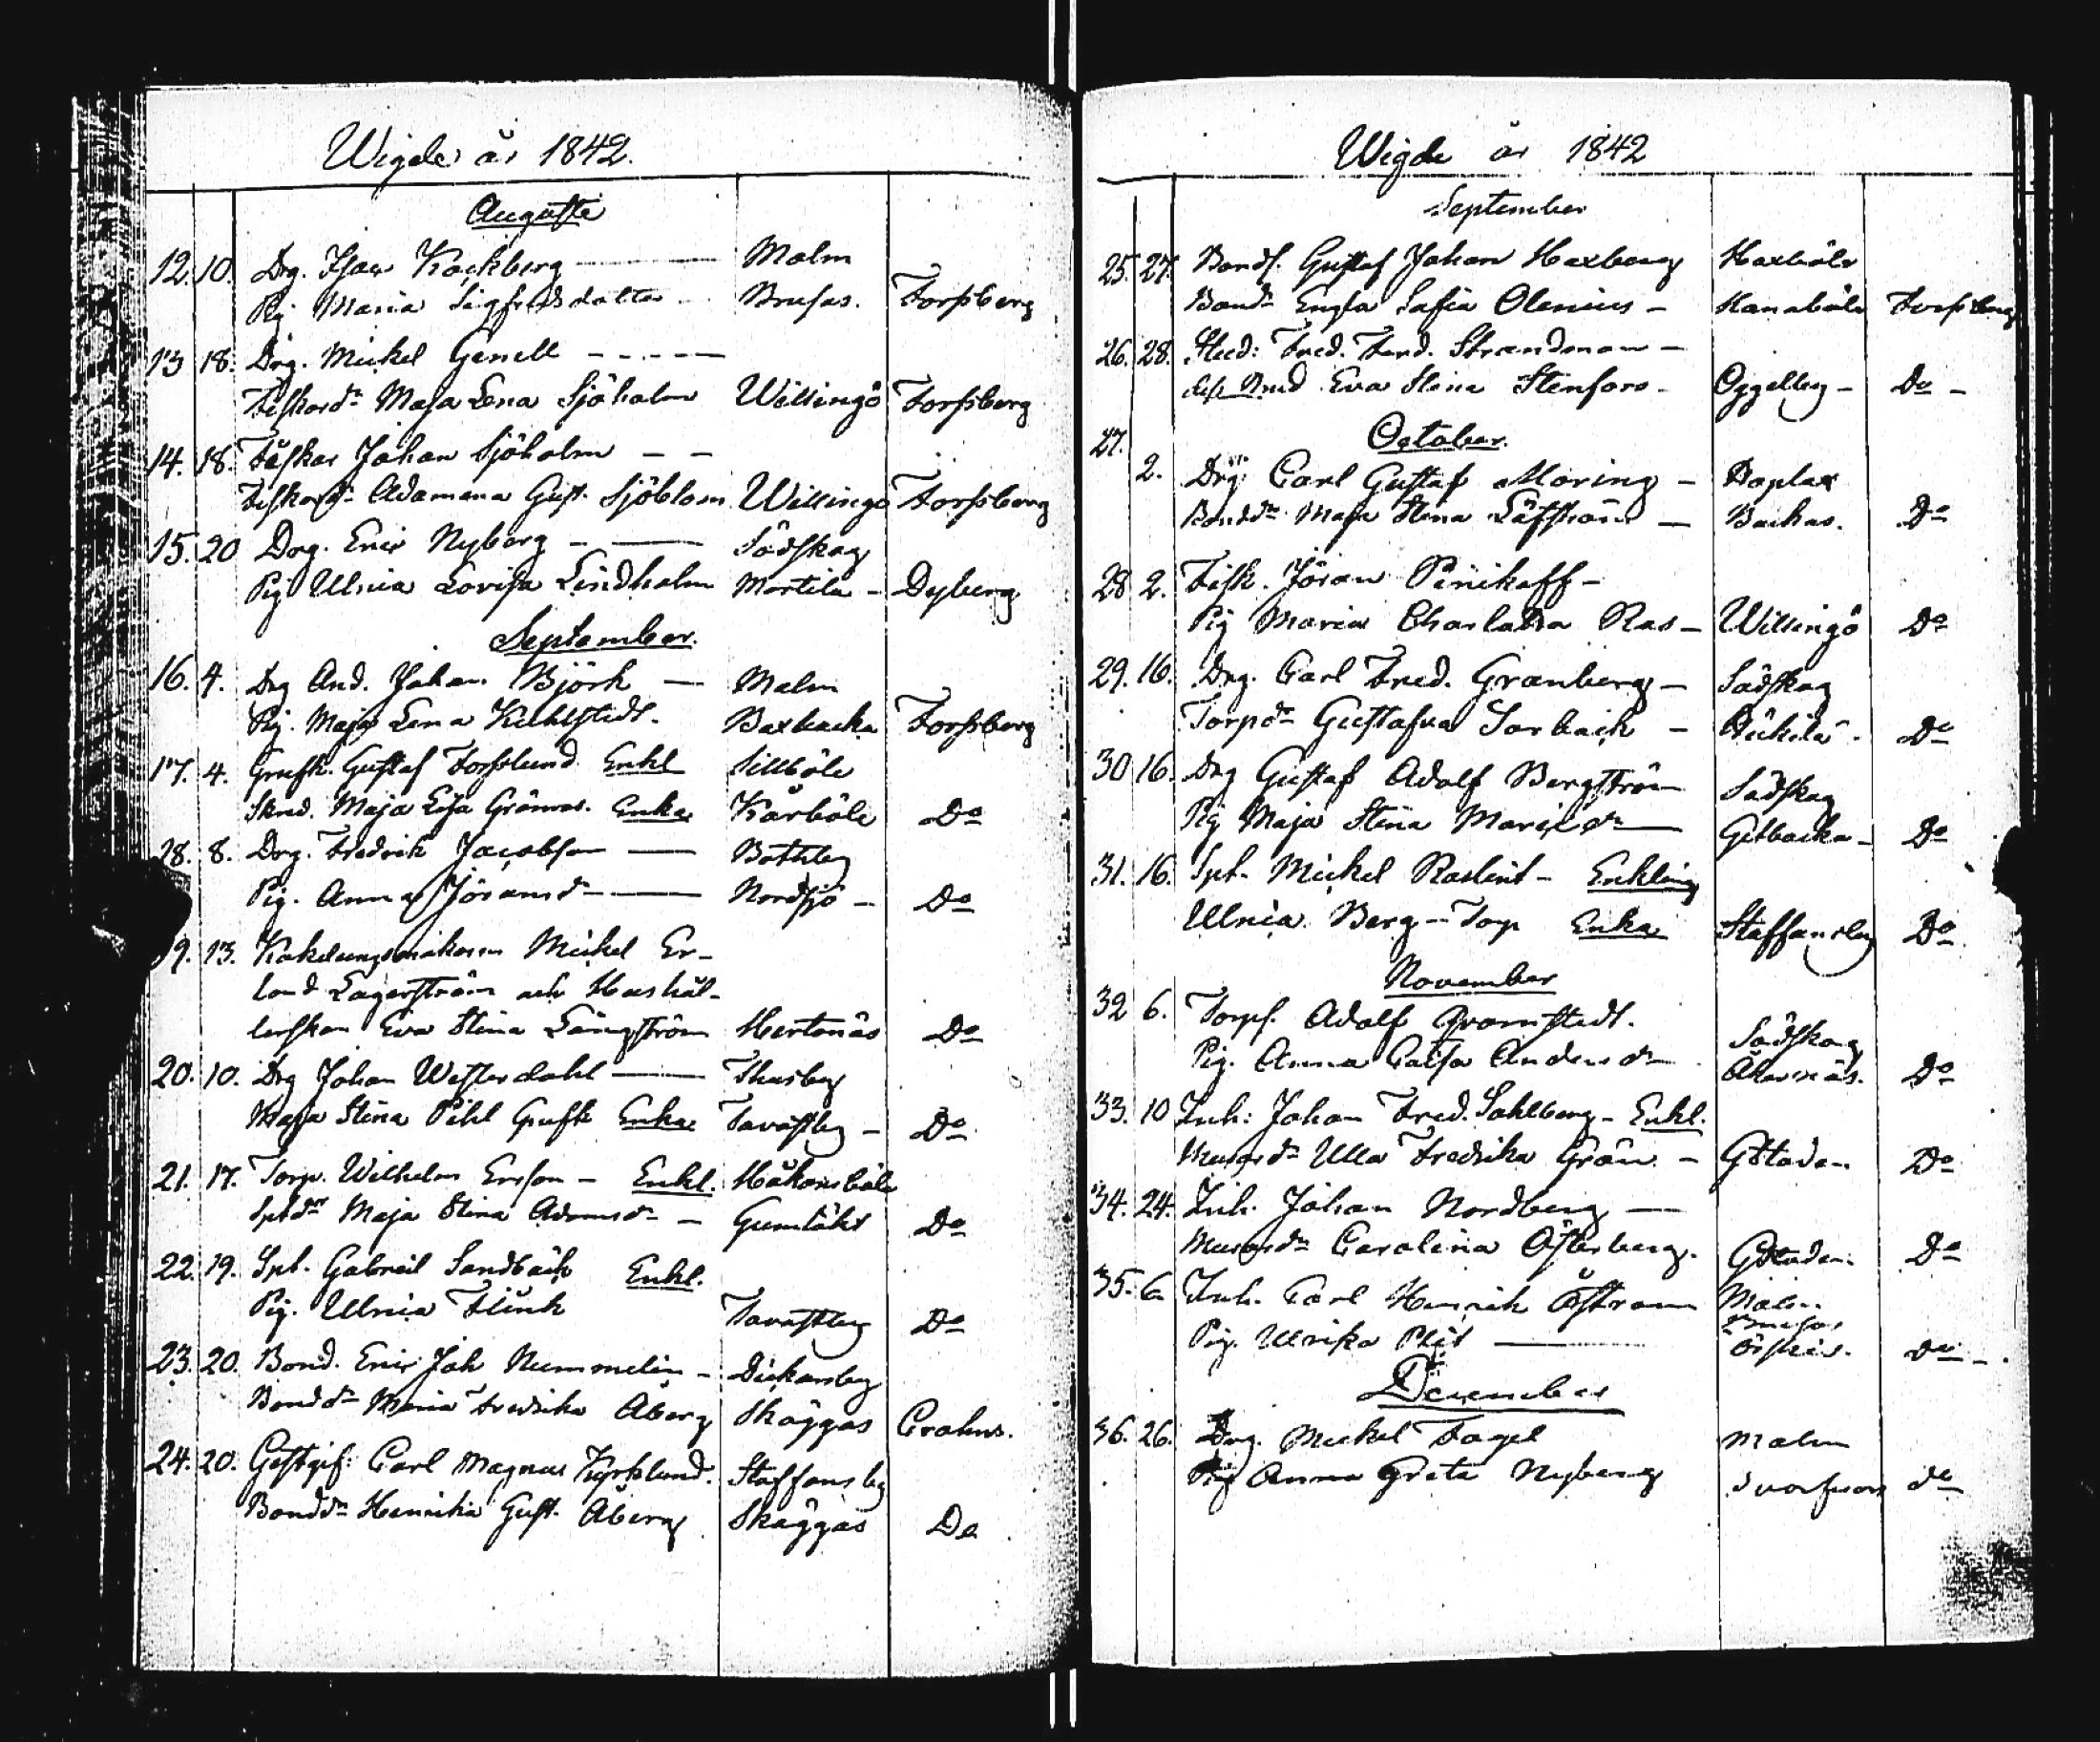 Wigde år 1842.
Augusti
12. 10. Drg. Isac Kackberg — Malm
Pig. Maria Sigfredsdotter Brusas. Forssberg
13 18. Drg. Mickel Genell - - - - -
Fiskard:r Maja Lena Sjöholm Willingö Forssberg
14. 18. Fiskar Johan Sjöholm - -
Fiskard:r Adamana Gust. Sjöblom Willingö Forssberg
15. 20 Drg. Eric Nyberg - — Sädskog
Pig Ulrica Lovisa Lindholm Mortila - Dyberg
September.
16. 4. Drg And. Johan Björk — Malm
Pig. Maja Lena Kuhlstedt. Baxbacka Forssberg
17. 4. Grufk. Gustaf Forsslund Enkl Sillböle
Maja Lisa Grönros. Enka Kårböle D:o
18. 8. Drg. Fredrik Jacobson — Bothby
Pig. Anna Jöransd:r — Nordsjö - D:o
19. 13. Kakelugnsmakaren Mickel Er-
land Lagerström och Hushål-
lerskan Eva Stina Långström Hertonäs D:o
20. 10. Drg Johan Westerdahl — Thusby
Maja Stina Pihl Grufk Enka Tavastby - D:o
21. 17. Torp. Wilhelm Ersson - Enkl. Håkansböle
Sptd:r Maja Stina Adamsd:r - Gumtäkt D:o
22. 19. Spt. Gabriel Sandbäck Enkl.
Pig. Ulrica Flinck Tavastby D:o
23. 20. Bond. Eric Joh Nummelin - Dickursby
Bondd:r Maria Fredrika Åberg Skäggas Crohns.
24. 20. Gästgif: Carl Magnus Kyrklund. Staffansby
Bondd:r Henrika Gust. Åberg Skäggas Do
Wigde år 1842
September
25. 27. Bonds. Gustaf Johan Haxberg Haxböle
Bondd:r Engla Safia Olenius - Kanaböle Forssberg
26. 28. Fred. Ferd. Strandman -
Eva Stina Stenfors - Oggelby - D:o -
27. October.
2. Drg Carl Gustaf Moring - Hoplax
Bondd:r Maja Stina Löfström — Backas. D:o
28 2. Fisk. Jöran Pinikoff -
Pig Maria Charlotta Ras - Willingö D:o
29. 16. Drg. Carl Fred. Granberg - Sädskog
Torpd:r Gustafva Sorback - D:o
30 16. Drg Gustaf Adolf Bergström Sädskog
Pig Maja Stina — Getbacka - D:o
31. 16. Spt. Mickel Raslint - Enkling
Ulrica Berg - Torp Enka Staffansby D:o
November
32 6. Torps. Adolf Gromstedt. Sädskog
Pig. Anna Caisa Andersd:r Åkernäs. D:o
33. 10 Inh: Johan Fred. Sahlberg - Enkl.
Ulla Fredrika Grön - G:staden D:o
34. 24. Inh. Johan Nordberg —
Carolina Österberg. G:staden. D:o
35. 6. Inh. Carl Henrik Öström Malm
Brusas
Pig. Ulrika — D:o - .
December
36. 26. Drg. Mickel Fagel Malm
Pig Anna Greta Nyberg d:o